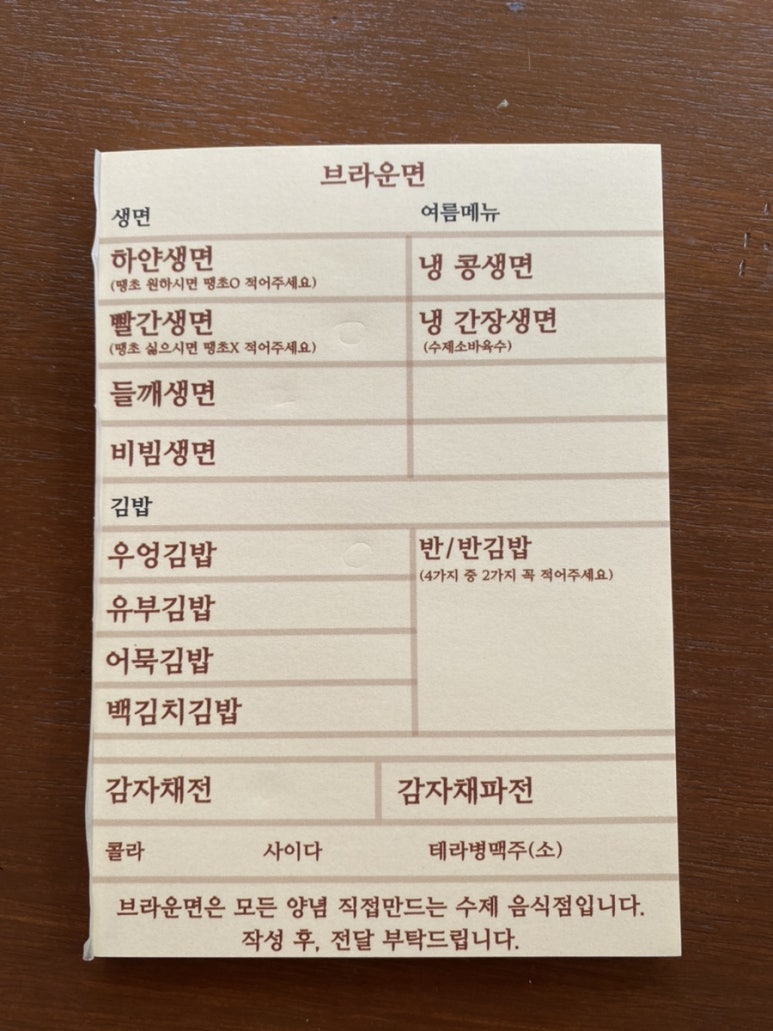 브라운면
생면
여름메뉴
하얀생면
(땡초 원하시면 땡초O 적어주세요)
냉 콩생면
빨간생면
(땡초 싫으시면 땡초X 적어주세요)
냉 간장생면
(수제소바육수)
들깨생면
비빔생면
김밥
우엉김밥
반/반김밥
(4가지 중 2가지 꼭 적어주세요)
유부김밥
어묵김밥
백김치김밥
감자채전
감자채파전
콜라
사이다
테라병맥주(소)
브라운면은 모든 양념 직접만드는 수제 음식점입니다.
작성 후, 전달 부탁드립니다.